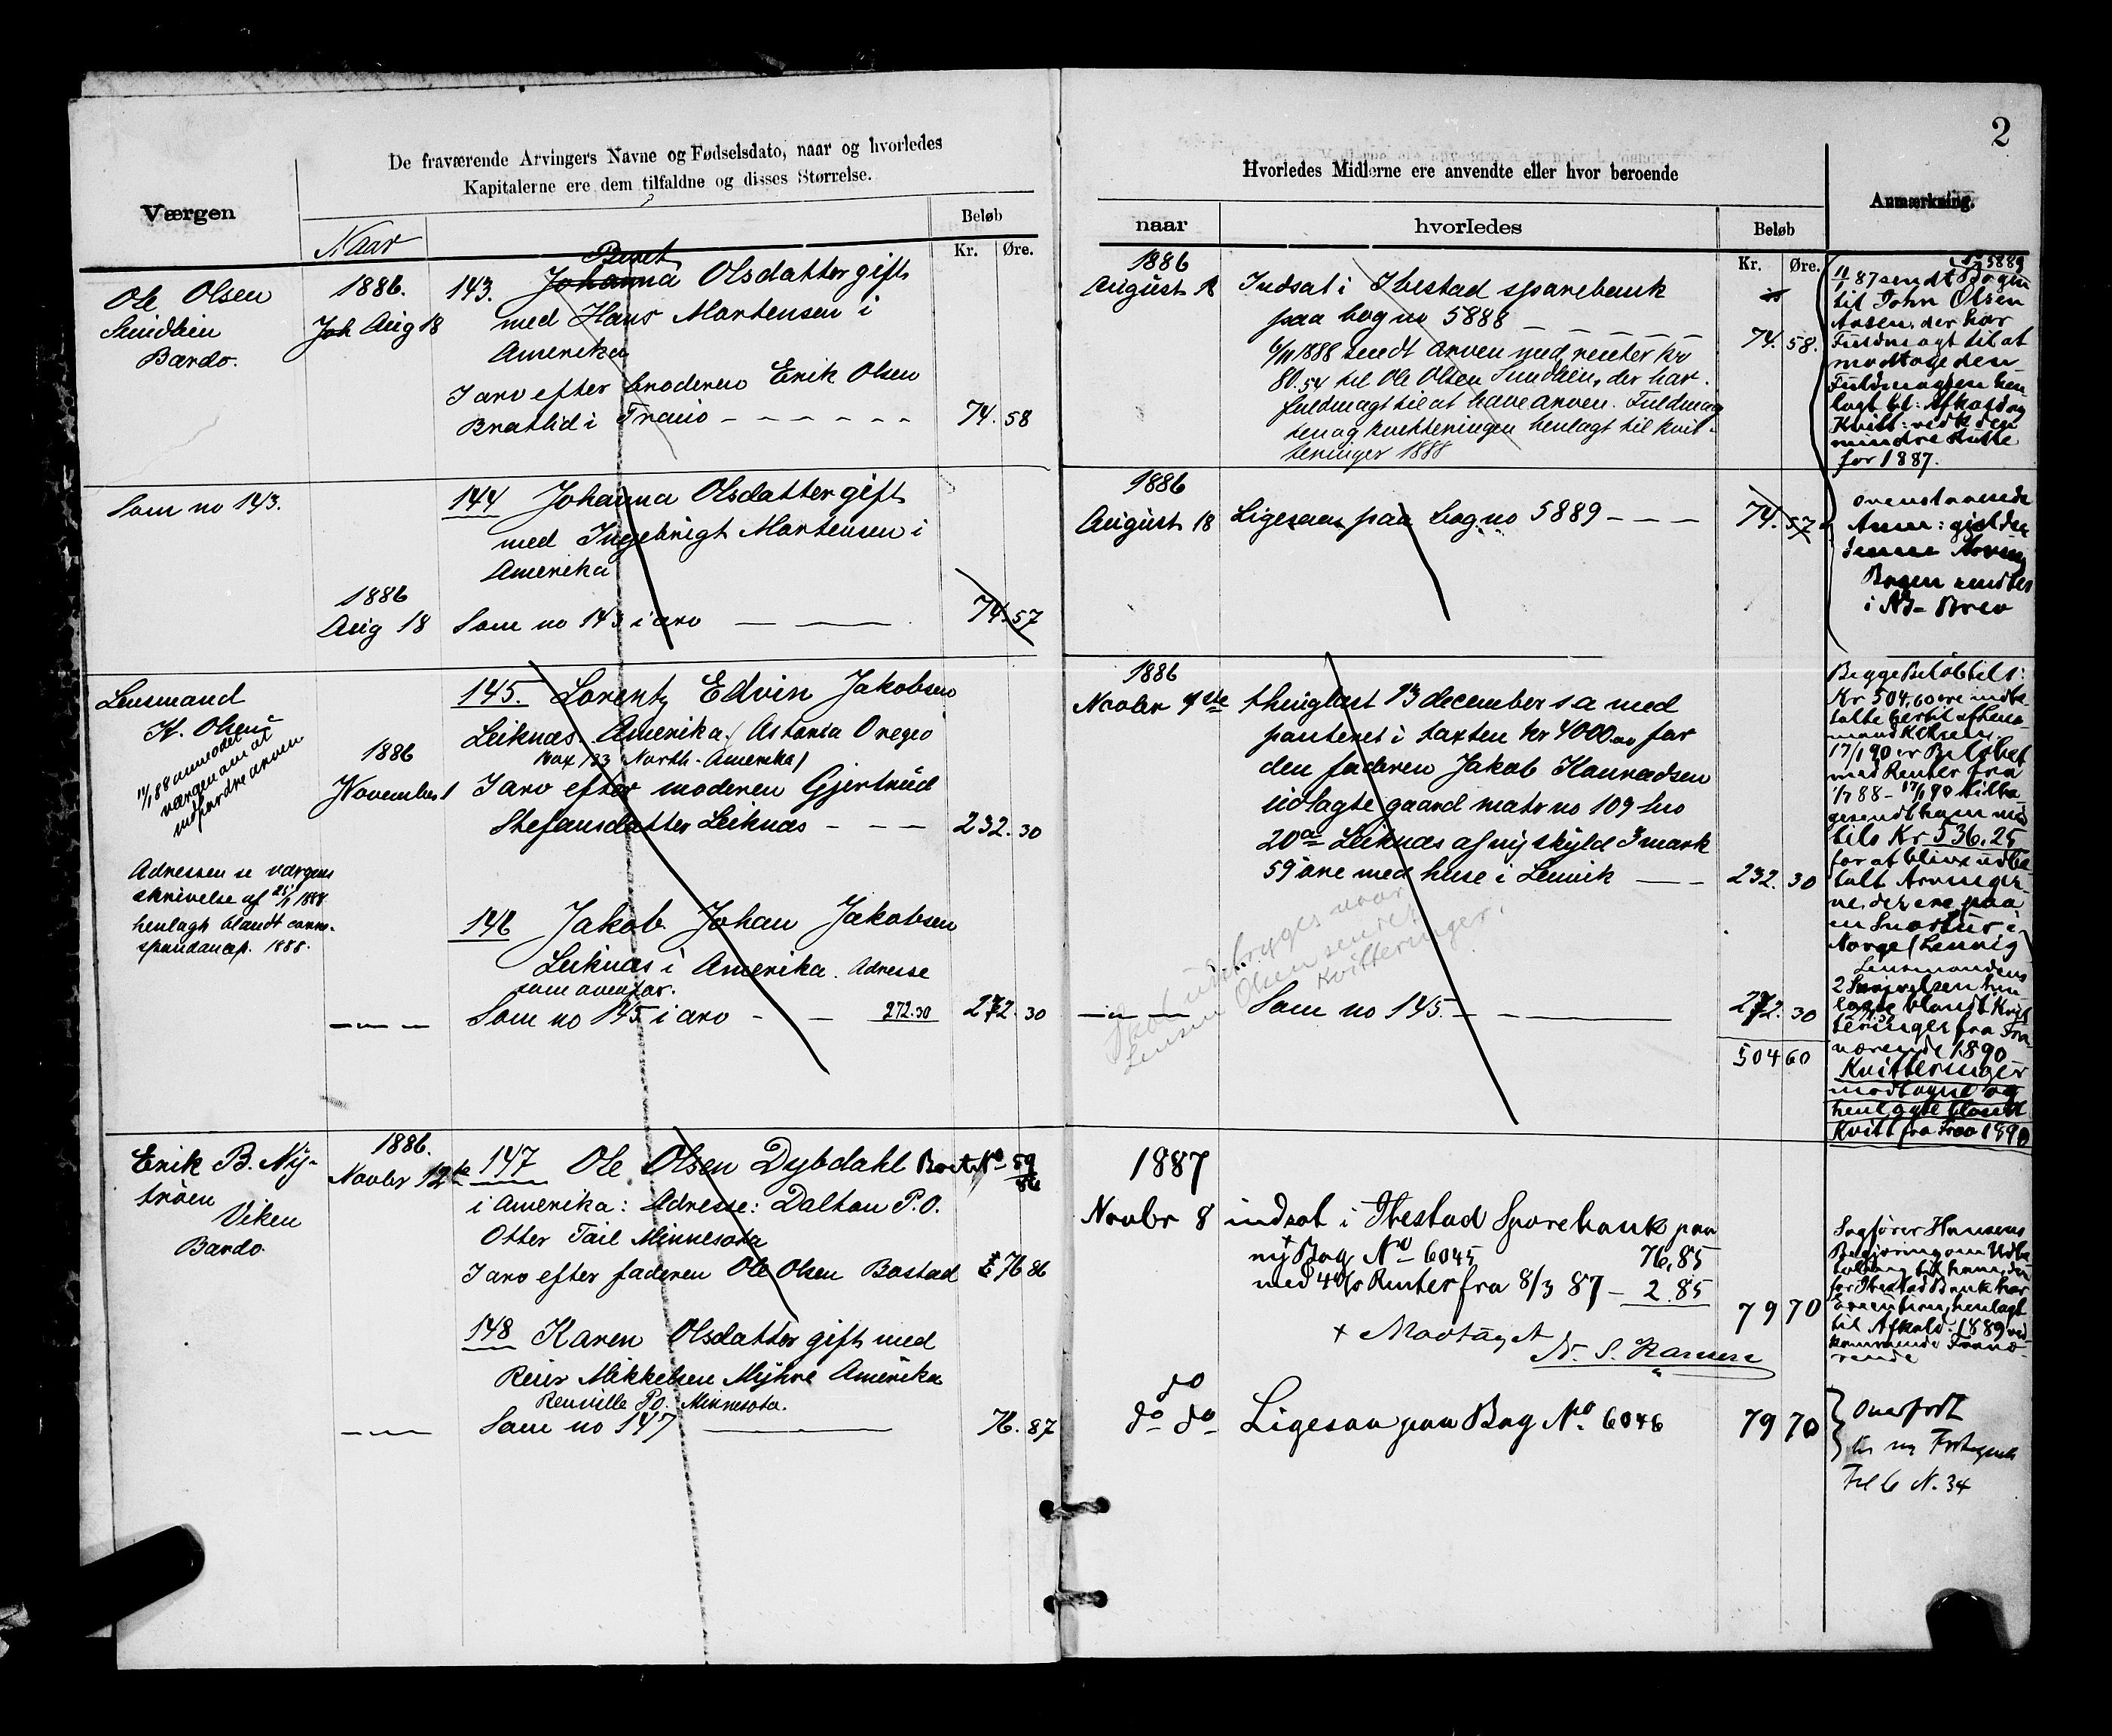 2
De fraværende Arvingers Navne og Fødselsdato, naar og hvorledes
Kapitalerne ere dem tilfaldne og disses Størrelse.
Værgen
Naar
Beløb
Kr. Øre.
Ole Olsen
Bardo.
1886.
Aug 18
143. Beret
Johanna Olsdatter gift
med Hans Mortensen i
Amerika
I arv efter broderen Erik Olsen
Bratlid i Tranø - - - - - - 74. 58
Som no 143.
144 Johanna Olsdatter gift
med Ingebrigt Mortensen i
Amerika
1886
Aug 18 Som no 143 i arv 74. 57
Lensmand
K. Olsen
11/1 88 anmodet
værgen om at
indfordre arven
Adressen se værgens
skrivelse af 25/1 1888
henlagt blandt corre-
spondancep. 1888.
145. Lorentz Edvin Jakobsen
Leiknæs Amerika (Astoria Oregon
box 133 North-Amerika)
1886
November 1 I arv efter moderen Gjertrud
Stefansdatter Leiknæs - - - 232. 30
146 Jakob Johan Jakobsen
Leiknæs i Amerika. Adresse
som ovenfor.
Som no 145 i arv - - 272.30 272. 30
Erik B. Ny-
trøen
Viken
Bardo.
1886.
Novbr 12te 147 Ole Olsen Dybdahl Boet No 59/86
i Amerika: Adresse: Dalton P.O.
Otter Tail Minnesota
I arv efter faderen Ole Olsen Bostad 76 86
148 Karen Olsdatter gift med
Reier Mikkelsen Myhre Amerika
Renville P.O. Minnesota.
Som no 147 76. 87
Hvorledes Midlerne ere anvendte eller hvor beroende
naar
hvorledes
Beløb
Kr. Øre.
Anmærkning.
1886
August 18 Indsat i Ibestad sparebank
paa bog no 5888 74. 58.
6/11 1888 sendt arven med renter kr
80.54 til Ole Olsen Sundlien, der har
fuldmagt til at hæve arven. Fuldmag
ten og kvitteringen henlagt til kvit-
teringer 1888
1886
August 18 Ligesaa paa bog no 5889 - - - 74. 57
1886
Novbr 1ste thinglæst 13 december s a med
panteret i taxten kr 4000.00 for
den faderen Jakob Konradsen
udlagte gaard matr no 109 lno
20a Leiknæs af ny skyld 3 mark
59 øre med huse i Lenvik 232. 30
Som no 145. 272. 30
504 60
1887
Novbr 8 indsat i Ibestad Sparebank paa
ny Bog No 6045 76,85
med 4% Renter fra 8/3 87 - 2.85
79 70
+ Modtaget
N. S. Hansen
do
do do Ligesaa paa Bog No. 6046 79 70
No 5889
11/1 87 sendt Bogen
til John Olsen
Aasen, der har
Fuldmagt til at
modtage den
Fuldmagten hen
lagt bl: Afkald og
Kvitt: ved den
mindre Skifte
for 1887.
ovenstaaende
Anm: gjelder
denne Arving
Bogen sendtes
i NB-Brev
Begge Beløb tils:
Kr 504,60 ere indbe
talte hertil af Lens
mand K Olsen.
17/1 90 er Beløbet
med Renter fra
1/7 88 - 17/1 90 tilba
gesendt ham med
tils Kr 536.25
for at blive udbe
talt Arvinger
ne, der ere paa
en Snartur i
Norge (Lenvig
Lensmandens
2 Skrivelser hen
lagte blandt Kvit
teringer fra Fra
værende 1890
Kvitteringer
modtagne og
henlagte blandt
Kvitt fra Frav 1890
Sagfører Hansens
Begjæring om Udbe
taling til ham, der
for Ibestad Bank har
Execution, henlagt
til Afkald 1889 ved
kommende Fravæ-
rende
Overført
til ny Protokol
Fol 6 N. 34